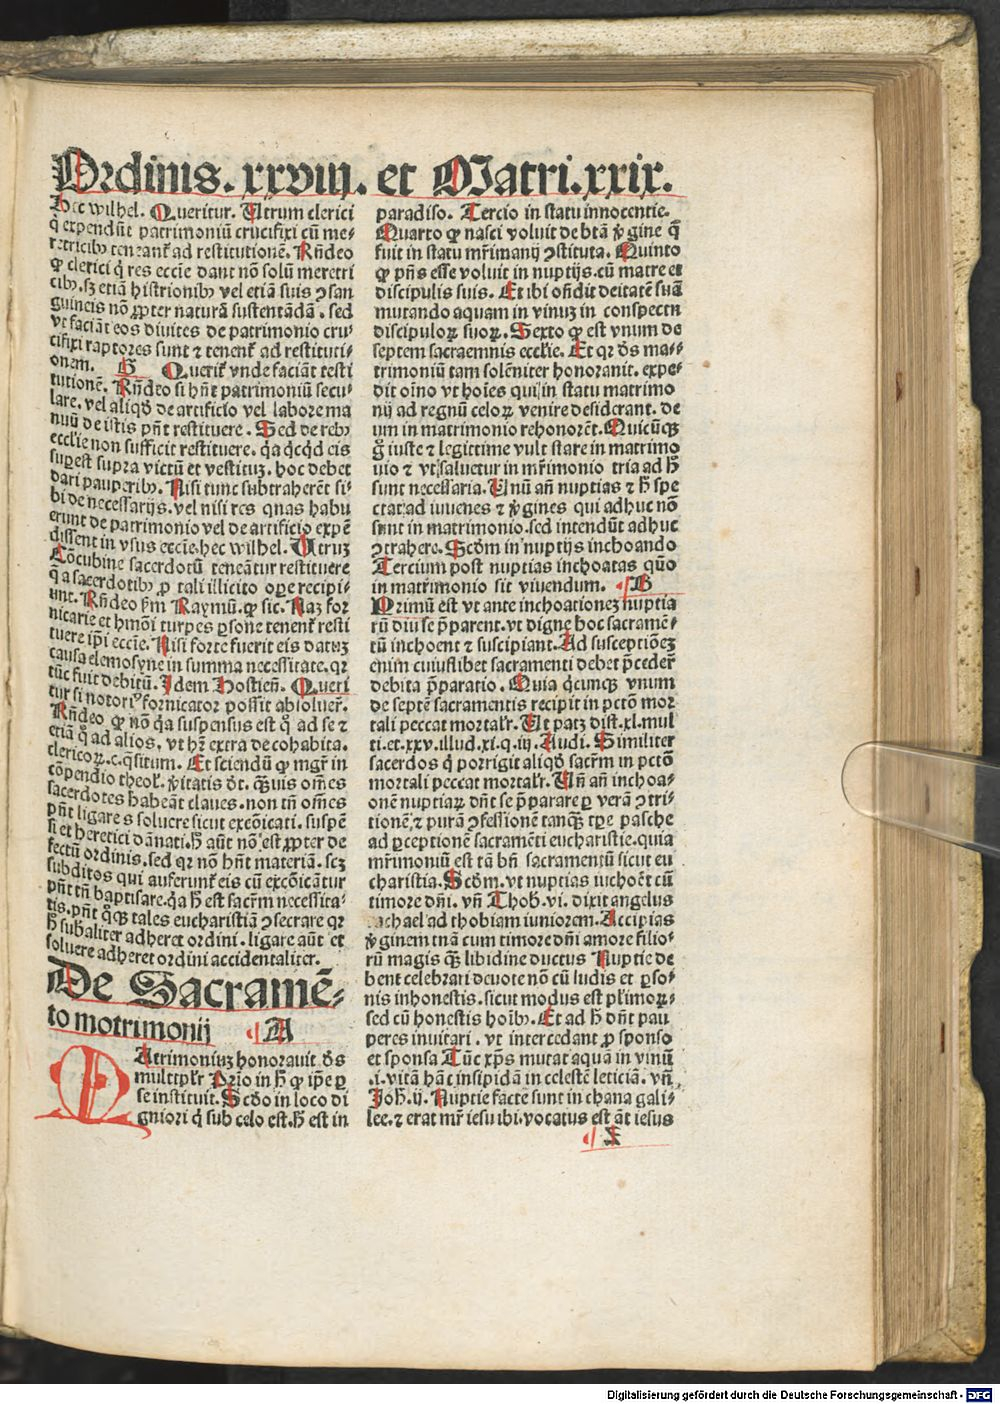 Ordinis. xxviij. et Matri. xxix.
hec wilhel. Queritur. Utrum clerici
q̄ expendūt patrimoniū crucifixi cū me⸗
retricibꝰ teneant᷑ ad restitutionē. Rn̄deo
ꝙ clerici q̇ res eccīe dant nō solū meretri
cibꝰ. sꝫ etiā histrionibꝰ vel etiā suis ꝯsan
guineis nō ꝓpter naturā sustentādā. sed
vt faciāt eos diuites de patrimonio cru⸗
cifixi raptores sunt ⁊ tenent᷑ ad restituti⸗
onem. G Querit᷑ vnde faciāt resti
tutionē. Rn̄deo si hn̄t patrimoniū secu⸗
lare. vel aliqd̓ de artificio vel labore ma
nuū de istis pn̄t restituere. Sed de rebꝰ
ecclīe non sufficit restituere. q̇a q̇cq̇d eis
suꝑest supra victū et vestituꝫ. hoc debet
dari pauperibꝰ. Nisi tunc subtraherēt si⸗
bi de necessarijs. vel nisi res quas habu
erunt de patrimonio vel de artificio expē
dissent in vsus eccīe. hec wilhel. Utruꝫ
Cōcubine sacerdotū teneātur restituere
q̄ a sacerdotibꝰ ꝓ tali illicito oꝑe recipi⸗
unt. Rn̄deo ẜm Raymū. ꝙ sic. Naꝫ for
nicarie et hmōi turpes ꝑsone tenent᷑ resti
tuere ip̄i eccīe. Nisi forte fuerit eis datuꝫ
causa elemosyne in summa necessitate. qꝛ
tūc fuit debitū. Idem Hostien̄. Queri
tur si notoriꝰ fornicator possit absoluer᷑.
Rn̄deo ꝙ nō q̇a suspensus est q̊ ad se ⁊
etiā q̊ ad alios. vt hꝫ̄ extra de cohabita.
clericoꝝ. c. q̄situm. Et sciendū ꝙ mgr̄ in
cōpendio theol᷑. v̓itatis d̄t. qᷓuis om̄es
sacerdotes habeāt claues. non tn̄ om̄es
pn̄t ligare ⁊ soluere sicut excōicati. suspē
si et heretici dānati. H̄ aūt nō est ꝓpter de
fectū ordinis. sed qꝛ nō hn̄t materiā. scꝫ
subditos qui auferunt᷑ eis cū excōicātur
pn̄t tn̄ baptisare. q̇a h̄ est sacr̄m necessita⸗
tis. pn̄t qᷓꝫ tales eucharistiā ꝯsecrare qꝛ
h̄ subaliter adheret ordini. ligare aūt et
soluere adheret ordini accidentaliter.
De Sacramē⸗
to motrimonij A
MAtrimoniuꝫ honorauit d̄s
multipl᷑r Prio in h̄ ꝙ ip̄e ꝑ
se instituit. Scd̓o in loco di
gniori q̇ sub celo est. h̄ est in
paradiso. Tercio in statu innocentie.
Quarto ꝙ nasci voluit de btā v̓gine q̄
fuit in statu mr̄imanij ꝯstituta. Quinto
ꝙ pn̄s esse voluit in nuptijs. cū matre et
discipulis suis. Et ibi on̄dit deitatē suā
mutando aquam in vinuꝫ in conspectu
discipuloꝝ suoꝝ. Sexto ꝙ est vnum de
septem sacraemnis ecclīe. Et qꝛ d̄s ma⸗⸗
trimoniū tam solēniter honorauit. expe⸗
dit oīno vt hoīes qui in statu matrimo
nij ad regnū celoꝝ venire desiderant. de
um in matrimonio rehonorēt. Quicūqꝫ
g̊ iuste ⁊ legittime vult stare in matrimo
nio ⁊ vt saluetur in mr̄imonio tria ad h̄
sunt necessaria. Unū an̄ nuptias ⁊ h̄ spe
ctat ad iuuenes ⁊ v̓gines qui adhuc nō
sunt in matrimonio. sed intendūt adhuc
ꝯtrahere. Scd̓m in nuptijs inchoando
Tercium post nuptias inchoatas quō
in matr̄imonio sit viuendum. B
Primū est vt ante inchoationeꝫ nuptia
rū diu se p̄parent. vt digne hoc sacramē⸗
tū inchoent ⁊ suscipiant. Ad susceptiōeꝫ
enim cuiuslibet sacramenti debet p̄ceder᷑
debita p̄paratio. Quia q̇cunqꝫ vnum
de septē sacramentis recipit in pctō mor
tali peccat mortal᷑r. Ut patꝫ dist. xl. mul
ti. et. xxv. illud. xi. q. iij. Audi. Similiter
sacerdos q̇ porrigit aliqd̓ sacr̄m in pctō
mortali peccat mortal᷑r. Un̄ an̄ inchoa⸗
onē nuptiaꝝ dn̄t se p̄parare ꝑ verā ꝯtri⸗
tionē. ⁊ purā ꝯfessionē tanqᷓꝫ tꝑe pasche
ad ꝑceptionē sacramēti eucharistie. quia
mr̄imoniū est tā bn̄ sacramentū sicut eu
charistia. Scd̓m. vt nuptias inchoēt cū
timore dn̄i. vn̄ Thob. vi. dixit angelus
achael ad thobiam iuniorem. Accipias
v̓ginem tuā cum timore dn̄i amore filio⸗
rū magis qᷓꝫ libidine ductus Nuptie de
bent celebrari deuote nō cū ludis et ꝑso⸗
nis inhonestis. sicut modus est pl᷑imoꝝ⸗
sed cū honestis hoībꝰ. Et ad h̄ dn̄t pau
peres inuitari. vt intercedant ꝓ sponso
et sponsa Tūc xp̄s mutat aquā in vinū
.i. vitā hāc insipidā in celestē leticiā. vn̄
Joh̄. ij. Nuptie facte sunt in chana gali⸗
lee. ⁊ erat mr̄ iesu ibi. vocatus est āt iesus
Digitalisierung gefördert durch die Deutsche Forschungsgemeinschaft - DFG